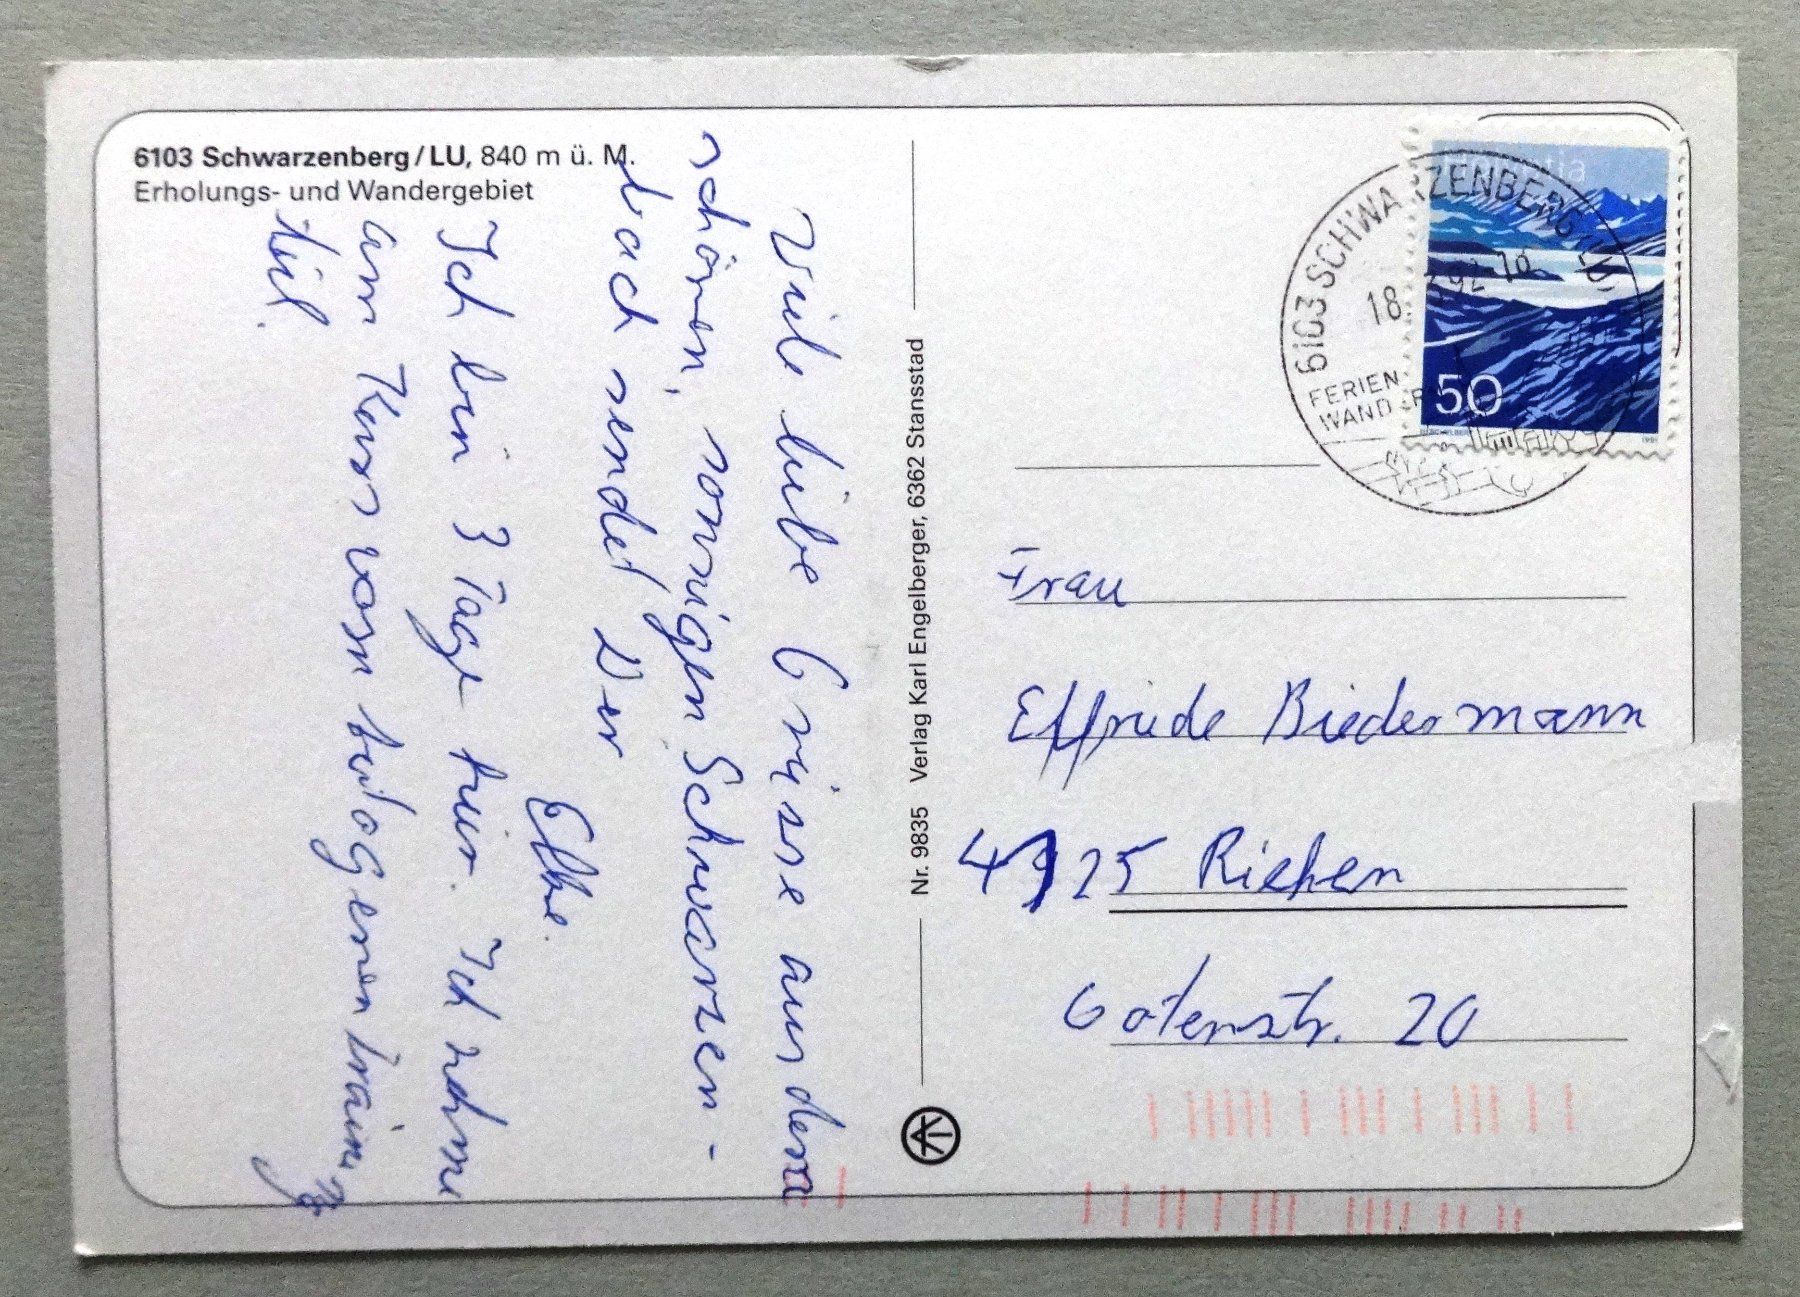 6103 Schwarzenberg/LU, 840 m ü. M.
Erholungs- und Wandergebiet
Viele liebe Grüsse aus dem
schönen, sonnigen Schwarzen-
bach sendet Dir
Elke.
Ich bin 3 Tage hier. Ich nehme
am Kurs vom autogenen Training
teil.
Nr. 9835 Verlag Karl Engelberger, 6362 Stansstad
Helvetia
50
6103 SCHWARZENBERG LU
18
92
FERIEN
WANDER
Frau
Elfriede Biedermann
4125 Riehen
Gotenstr. 20